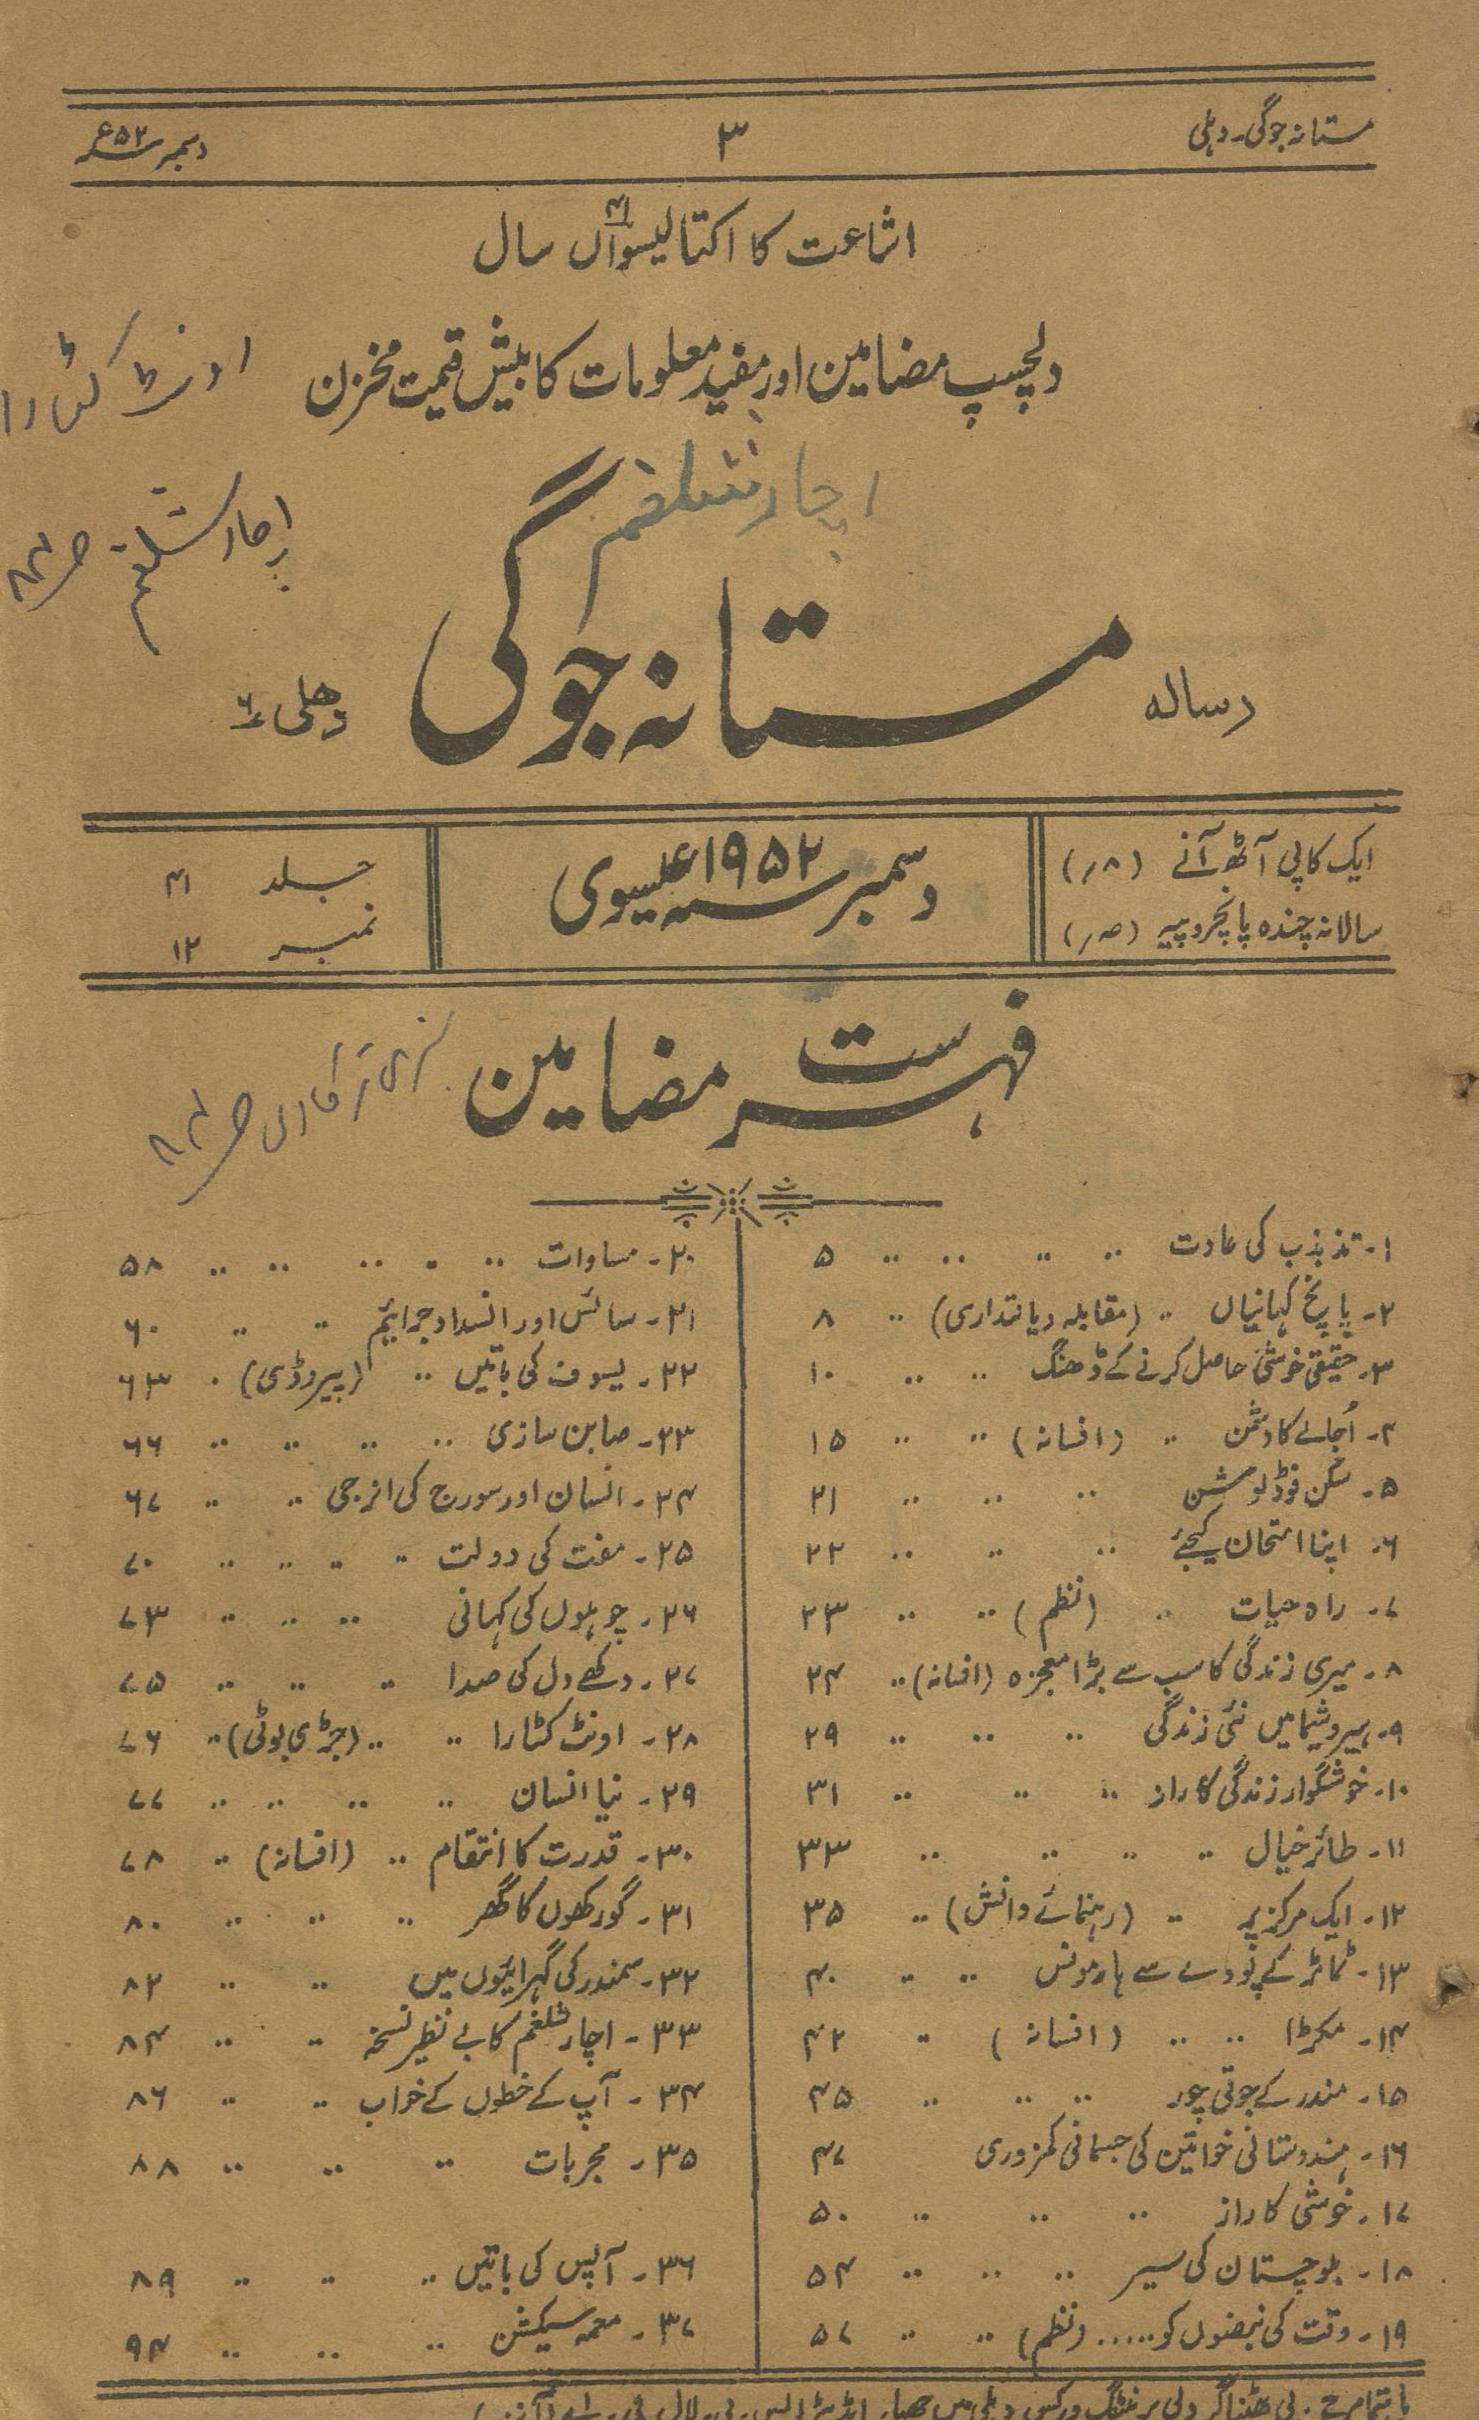 مستانہ جوگی۔ دہلی
۳
دسمبر ۵۲ء
اشاعت کا اکتالیسواں ۴۱ سال
دلچسپ مضامین اور مفید معلومات کا بیش قیمت مخزن
اونٹ کٹارا
اچار شلغم
اچار شلغم ص ۸۴
رسالہ
مستانہ جوگی
دھلی ۶
ایک کاپی آٹھ آنے (۸؍)
سالانہ چندہ پانچروپیہ (صہ؍)
دسمبر ۱۹۵۲ء عیسوی
جلد ۴۱
نمبر ۱۲
فہرست مضامین
ترکاری ص ۸۴
۱۔ تذبذب کی عادت ۵
۲۔ پانچ کہانیاں (مقابلہ دیانتداری) ۸
۳۔ حقیقی خوشی حاصل کرنے کے ڈھنگ ۱۰
۴۔ اُجالے کا دشمن (افسانہ) ۱۵
۵۔ سکن فوڈ لوشن ۲۱
۶۔ اپنا امتحان کیجئے ۲۲
۷۔ راہ حیات (نظم) ۲۳
۸۔ میری زندگی کا سب سے بڑا معجزہ (افسانہ) ۲۴
۹۔ ہیروشیما میں نئی زندگی ۲۹
۱۰۔ خوشگوار زندگی کا راز ۳۱
۱۱۔ طائر خیال ۳۳
۱۲۔ ایک مرکز پر (رہنمائے دانش) ۳۵
۱۳۔ ٹماٹر کے پودے سے ہارمونس ۴۰
۱۴۔ مکڑا (افسانہ) ۴۲
۱۵۔ مندر کے جوتی چور ۴۵
۱۶۔ ہندوستانی خواتین کی جسمانی کمزوری ۴۷
۱۷۔ خوشی کا راز ۵۰
۱۸۔ بلوچستان کی سیر ۵۴
۱۹۔ وقت کی نبضوں کو..... (نظم) ۵۷
۲۰۔ مساوات ۵۸
۲۱۔ سائنس اور انسداد جرائم ۶۰
۲۲۔ یسوف کی باتیں (پیروڈی) ۶۳
۲۳۔ صابن سازی ۶۶
۲۴۔ انسان اور سورج کی انرجی ۶۷
۲۵۔ مفت کی دولت ۷۰
۲۶۔ چوہوں کی کہانی ۷۳
۲۷۔ دکھے دل کی صدا ۷۵
۲۸۔ اونٹ کٹارا (جڑی بوٹی) ۷۶
۲۹۔ نیا انسان ۷۷
۳۰۔ قدرت کا انتقام (افسانہ) ۷۸
۳۱۔ گورکھوں کا گھر ۸۰
۳۲۔ سمندر کی گہرائیوں میں ۸۲
۳۳۔ اچار شلغم کا بے نظیر نسخہ ۸۴
۳۴۔ آپ کے خطوں کے خواب ۸۶
۳۵۔ مجربات ۸۸
۳۶۔ آپس کی باتیں ۸۹
۳۷۔ معمہ سیکشن ۹۴